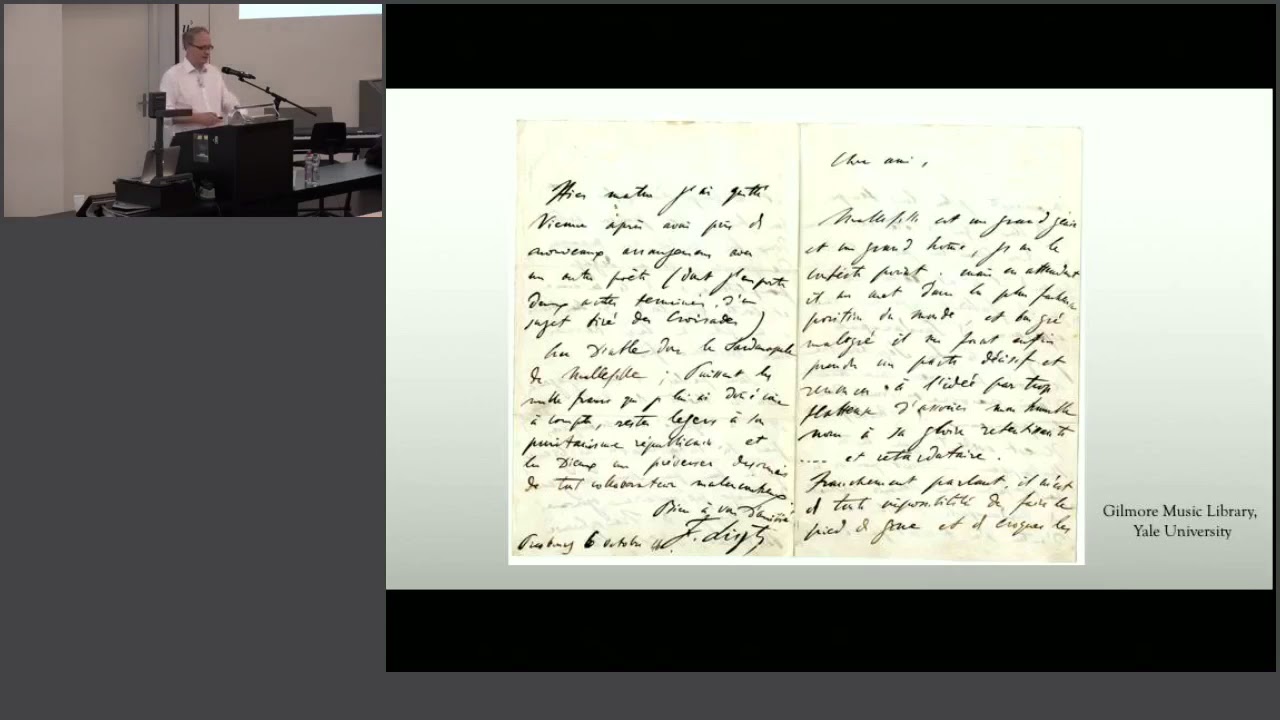 Hier matin j'ai quitté
Vienne après avoir pris de
nouveaux arrangemens avec
un autre poète (dont j'emporte
deux actes terminés d'un
sujet tiré des Croisades)
Au Diable donc le Sardanapale
de Mallefille ; Puissent les
mille francs que je lui ai
à compte, rester légers à son
puritanisme républicain et
les Dieux me préserver désormais
de tout collaborateur malencontreux
Bien à vous d'amitié
F. Liszt
6 octobre
Cher ami,
Mallefille est un grand génie
et un grand homme, je ne le
conteste point. mais en attendant
il me met dans la plus fâcheuse
position du monde, et bon gré
malgré il me faut enfin
prendre un parti décisif et
renoncer à l'idée par trop
flatteuse d'associer mon humble
nom à sa gloire retentissante
.... et retardataire.
Franchement parlant, il m'est
de toute impossibilité de faire le
pied de grue et de croquer les
Gilmore Music Library,
Yale University